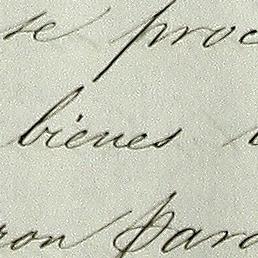 se proc
bienes
ron para